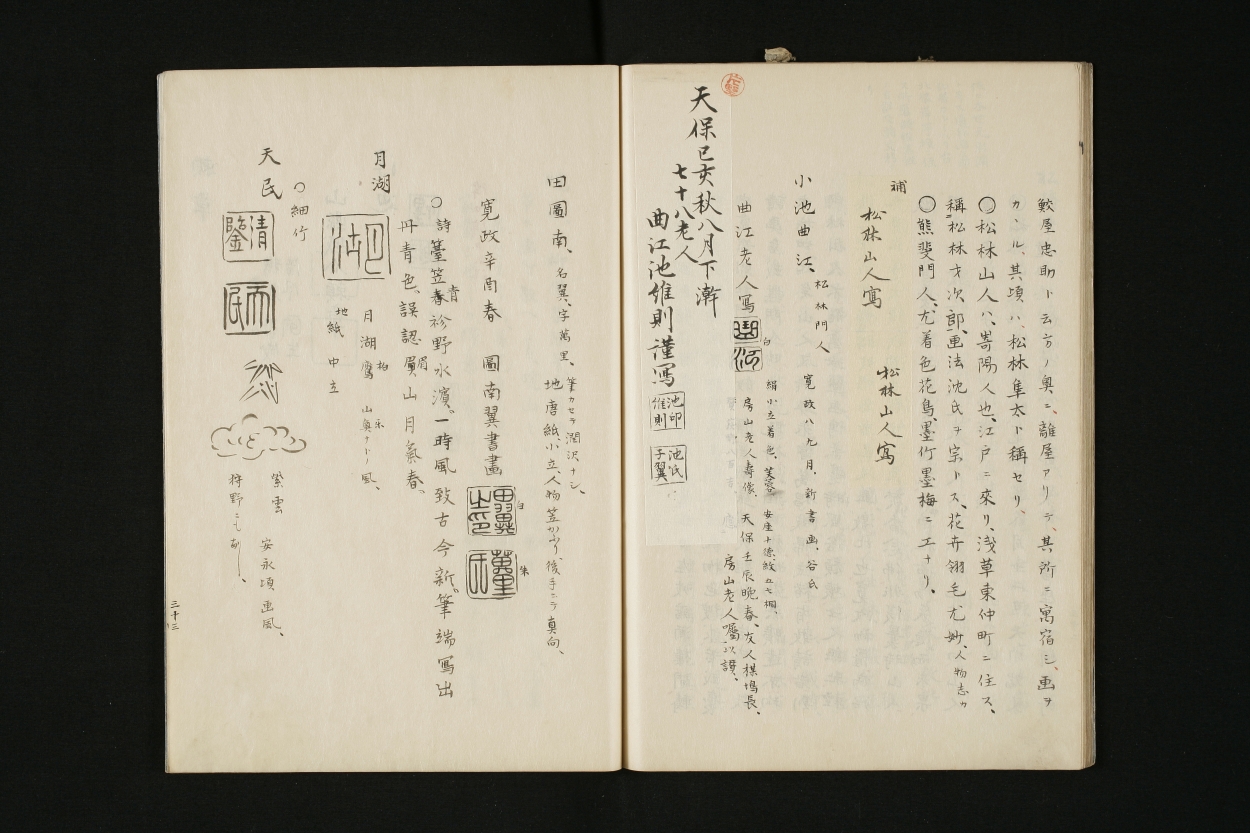 鮫屋忠助ト云方ノ奥ニ、離屋アリテ、其所ニ寓宿シ、画ヲ
カンル、其頃ハ、松林隼太ト稱セリ、
〇松林山人ハ、嵜陽人也、江戸ニ來リ、浅草東仲町ニ住ス、
稱松林才次郎、画法沈氏ヲ宗トス、花卉翎毛尤妙、人物志カ
〇熊斐門人、尤着色花鳥、墨竹墨梅ニ工ナリ、
補
松林山人寫
松林山人寫
小池曲江、松林門人
寛政八九月、新書画、谷氏
曲江老人寫
白
絹小立着色、芙蓉
安座十徳紋五七桐、
房山老人壽像、天保壬辰晩春、友人
房山老人囑以讃、
天保己亥秋八月下澣
七十八老人
曲江池維則謹寫
池印維則
池氏子翼
田圖南、名翼、字萬里、
筆カセテ潤沢ナシ、
地唐紙、小立、人物笠かぶり、後手ニテ真向、
寛政辛酉春 圖南翼書畫
白
朱
〇詩
薹笠春袗野水濱。一時風致古今新。筆端寫出
青
丹青色、誤認眉山月氣春。
眉
月湖
月湖
月湖鷹
柏
山奥ナトノ風、
地紙 中立
天民
〇細竹
清鑒
天民
紫雲 安永頃画風、
狩野ニも有し、
三十三